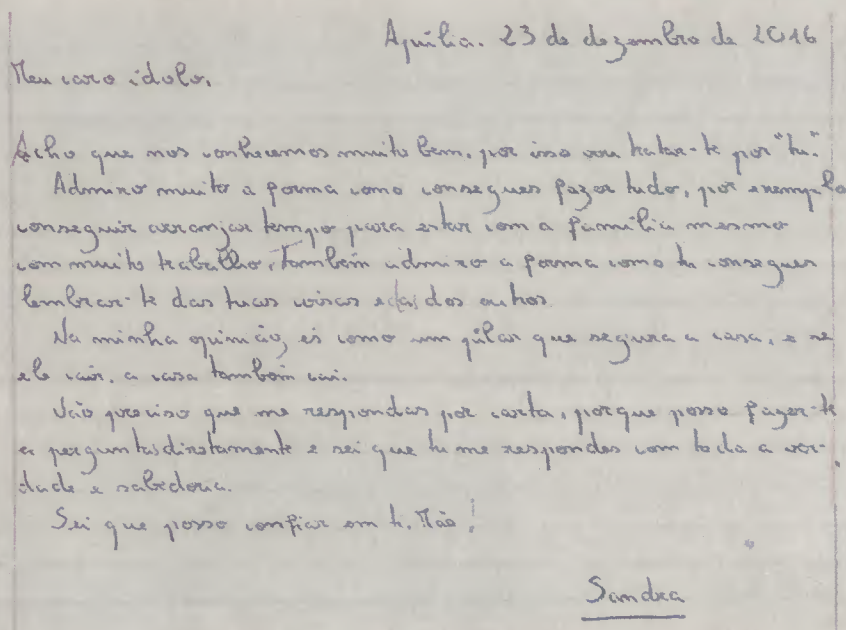 Apúlia. 23 de dezembro de 2016
Meu caro ídolo,
Acho que nos conhecemos muito bem, por isso vou tratar-te por "tu".
Admiro muito a forma como consegues fazer tudo, por exemplo
conseguir arranjar tempo para estar com a família mesmo
com muito trabalho. Também admiro a forma como tu consegues
lembrar-te das tuas coisas e das dos outros.
Na minha opinião, és como um pilar que segura a casa, e se
ele cair, a casa também cai.
Não preciso que me respondas por carta, porque posso fazer-te
a perguntas diretamente e sei que tu me respondes com toda a ver-
dade e sabedoria.
Sei que posso confiar em ti. Mãe!
Sandra